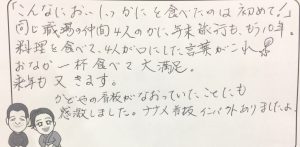 「こんなにおいしいかにを食べたのは初めて!」
同じ職場の仲間4人のかに年末旅行も、もう10年。
料理を食べて、4人が口にした言葉がこれ!
おなか一杯食べて大満足。
来年も又きます。
かどやの看板がなおっていたことにも
感激しました。ナナメ看板インパクトありましたよ